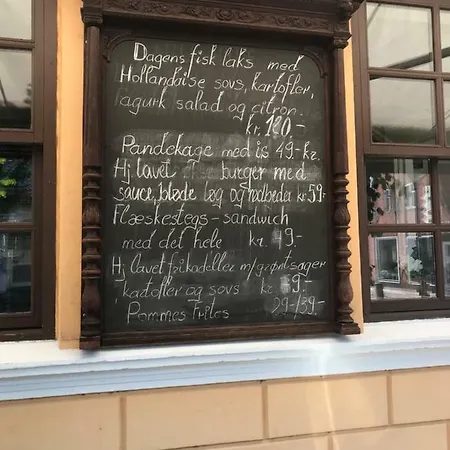 Dagens fisk laks med
Hollandaise sovs, kartofler,
agurk salad og citron.
kr. 120.-
Pandekage med is 49.-kr.
Hj lavet burger med
sauce, bløde løg og rødbeda kr 59.-
Flæskestegs-sandwich
med det hele kr. 49.-
Hj lavet frikadeller m/grøntsager
, kartofler og sovs kr 9.-
Pommes Frites 29-/39.-